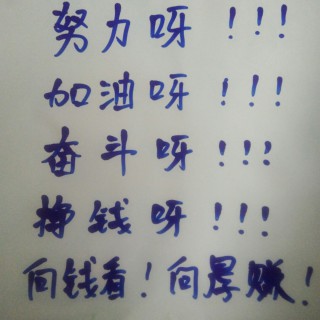 努力呀!!!
加油呀!!!
奋斗呀!!!
挣钱呀!!!
向钱看!向厚赚!